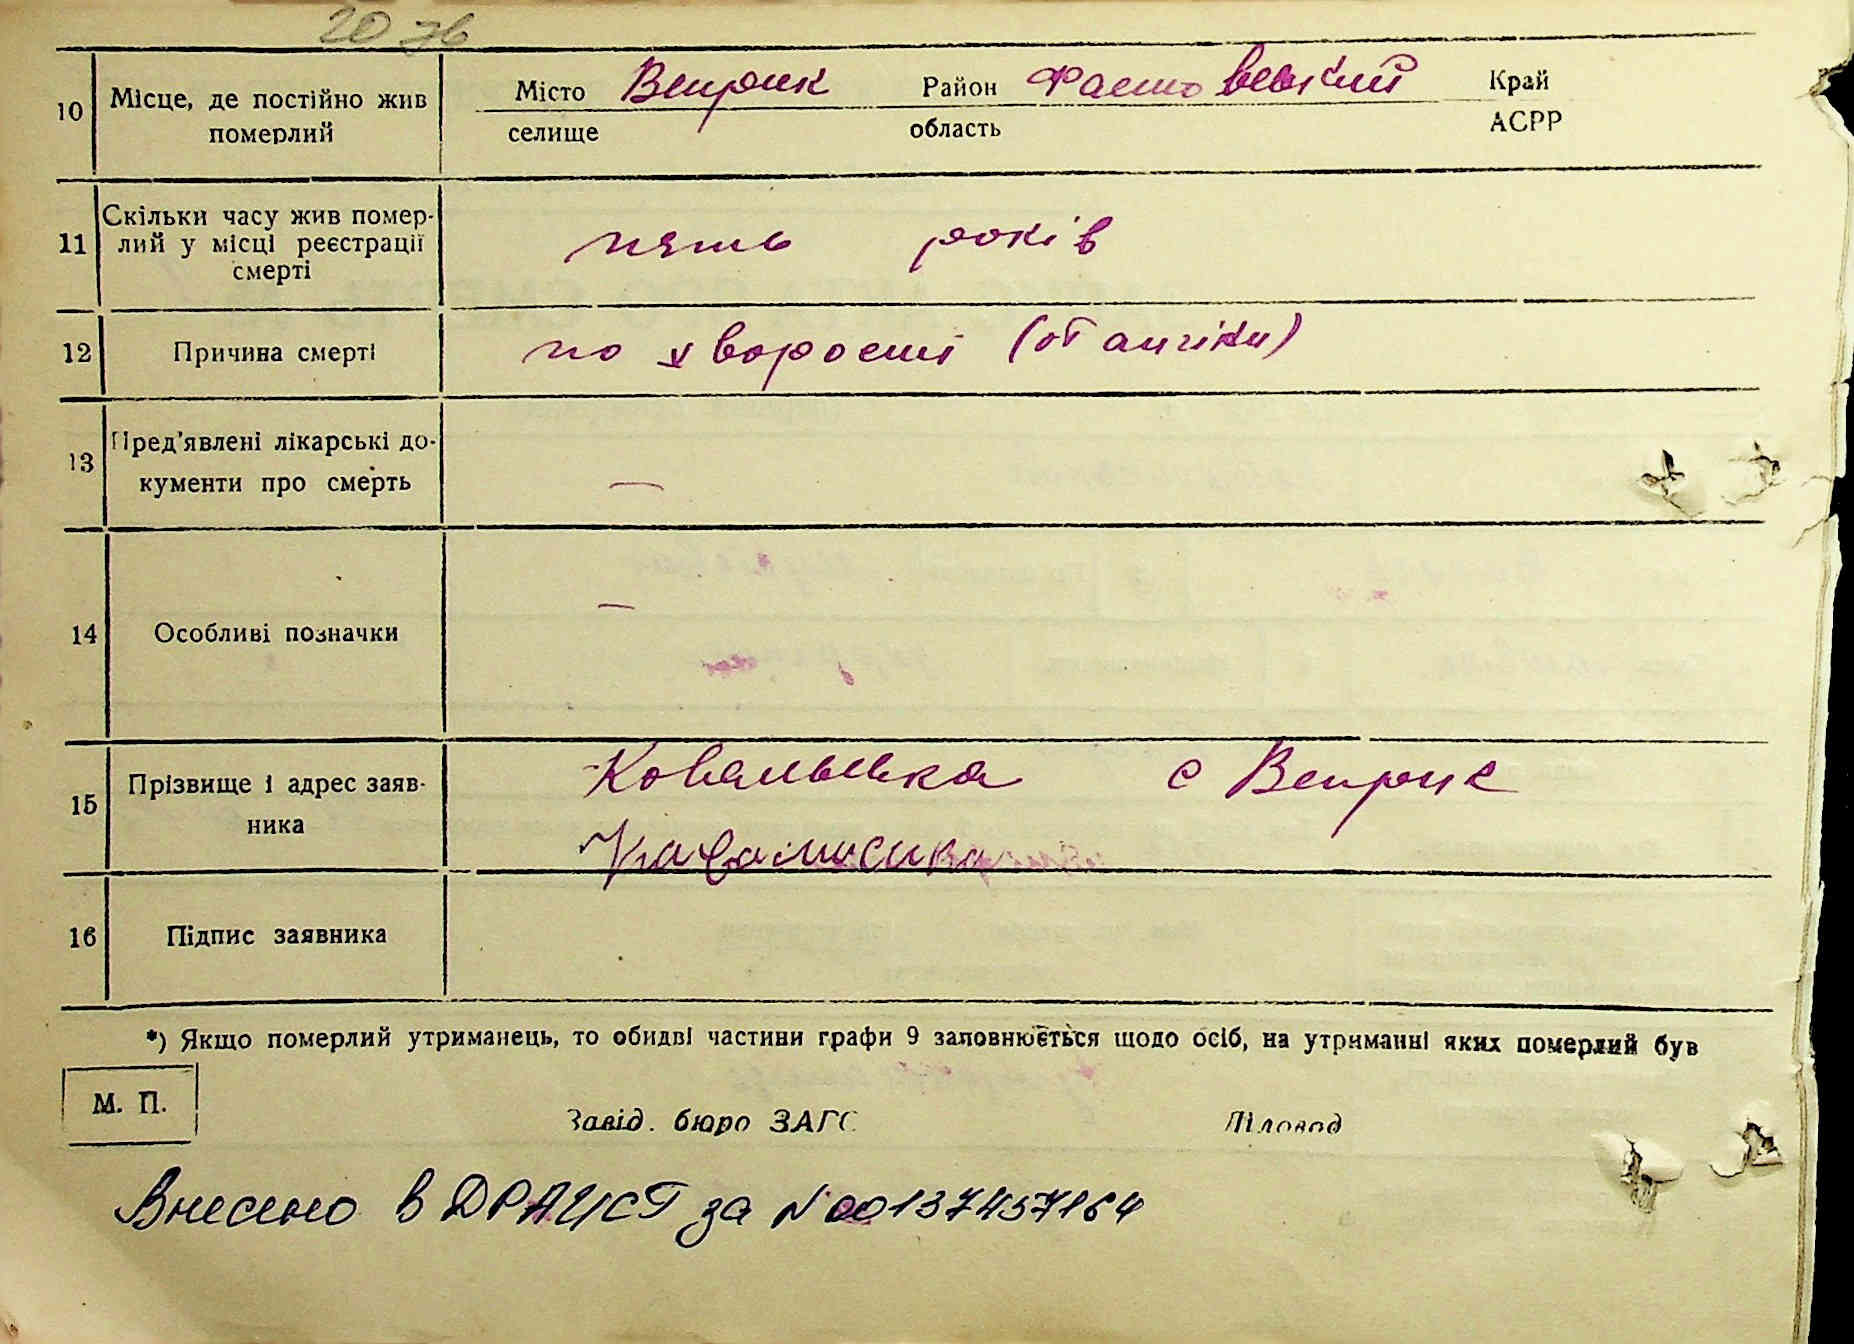 20 зв
10 Місце, де постійно жив померлий
Місто Веприк Район Фастовський Край
селище область АСРР
11 Скільки часу жив помер-
лий у місці реєстрації
смерті
пять років
12 Причина смерті
по хворості (от ангіни)
13 Пред'явлені лікарські до-
кументи про смерть
—
14 Особливі позначки
—
15 Прізвище і адрес заяв-
ника
Ковальська с Веприк
16 Підпис заявника
*) Якщо померлий утриманець, то обидві частини графи 9 заповнюється щодо осіб, на утриманні яких померлий був
М. П.
Завід. бюро ЗАГС Діловод
Внесено в ДРАЦСГ за N 00137457164